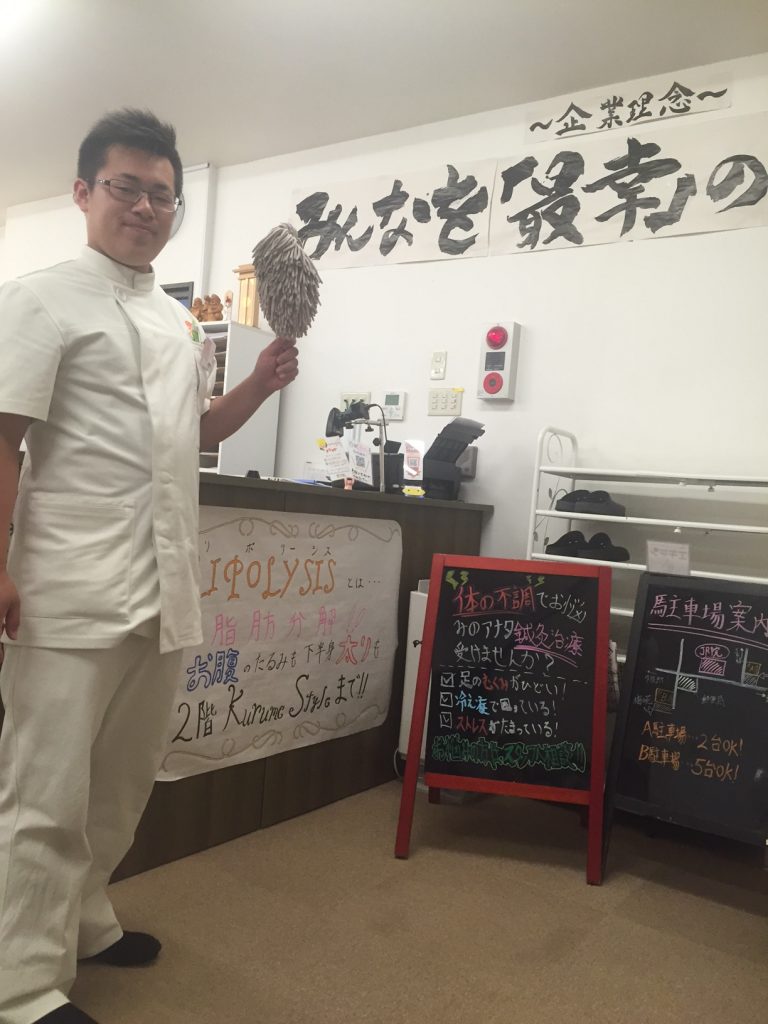 ~企業理念~
みんなを「最幸」の
リポリーシス
LIPOLYSIS とは…
脂肪分解!?
お腹のたるみも下半身太りも
2階 Kurume Styleまで!!
体の不調でお悩
みのアナタ鍼灸治療
受けませんか?
足のむくみがひどい!
冷え症で困っている!
ストレスがたまっている!
駐車場案内
A駐車場…2台OK!
B駐車場…5台OK!